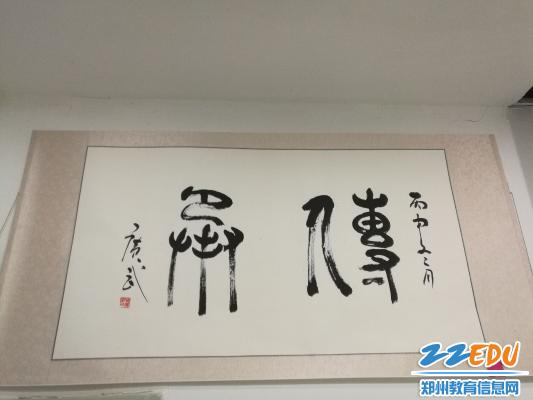 丙申 月
傳
承
廣武
ZZEDU
郑州教育信息网